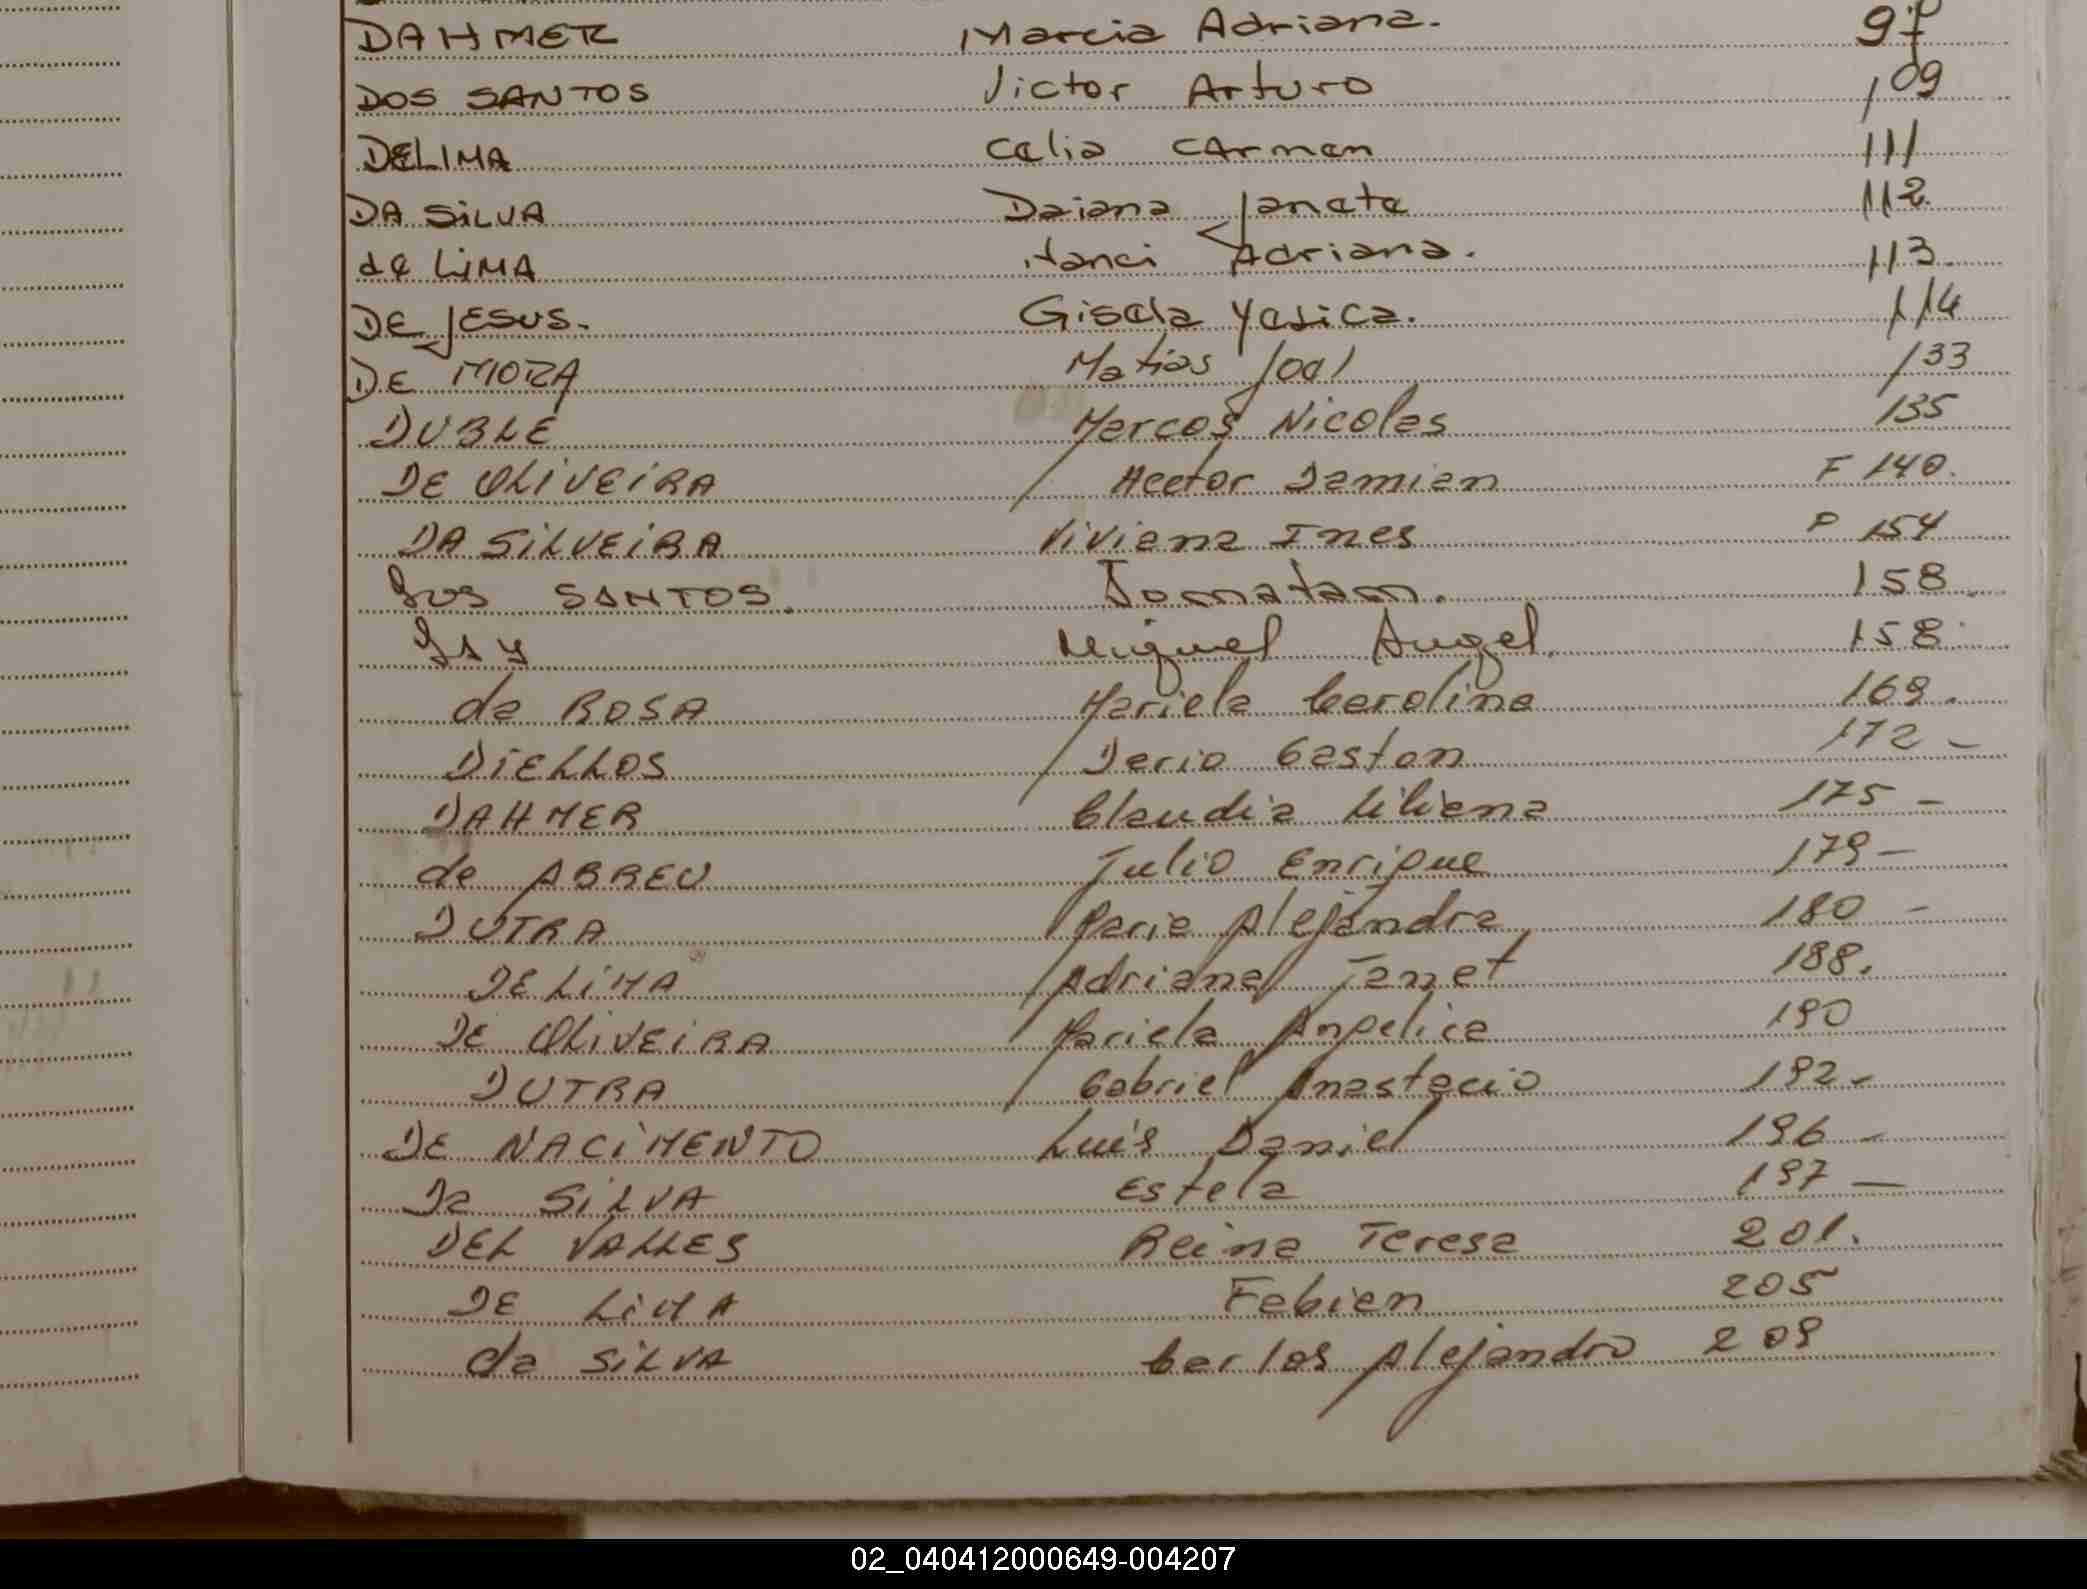 DAHMER Marcia Adriana. 97
DOS SANTOS Victor Arturo 109
DELIMA Celia Carmen 111
DA SILVA Daiana Janete 112
de LIMA Nanci Adriana. 113.
DE JESUS. Gisela Yesica. 114
DE MORA Matias Joel 133
DUBLE Marcos Nicolas 135
DE OLIVEIRA Hector Damian F 140.
DA SILVEIRA Viviana Ines P 154
Dos SANTOS. Jonnatam. 158.
Miguel Angel. 158.
da ROSA Mariela Carolina 169.
DIELLOS Dario Gaston 172 -
DAHMER Claudia Liliana 175 -
de ABREU Julio Enrique 179 -
DUTRA Maria Alejandra 180 -
DE LIMA Adriana Janet 188.
DE OLIVEIRA Mariela Angelica 190
DUTRA Gabriel Anastacio 192 -
DE NACIMENTO Luis Daniel 196 -
Da SILVA Estela 197 —
DEL VALLES Reina Teresa 201.
DE LIMA Fabian 205
da SILVA Carlos Alejandro 209
02_040412000649-004207